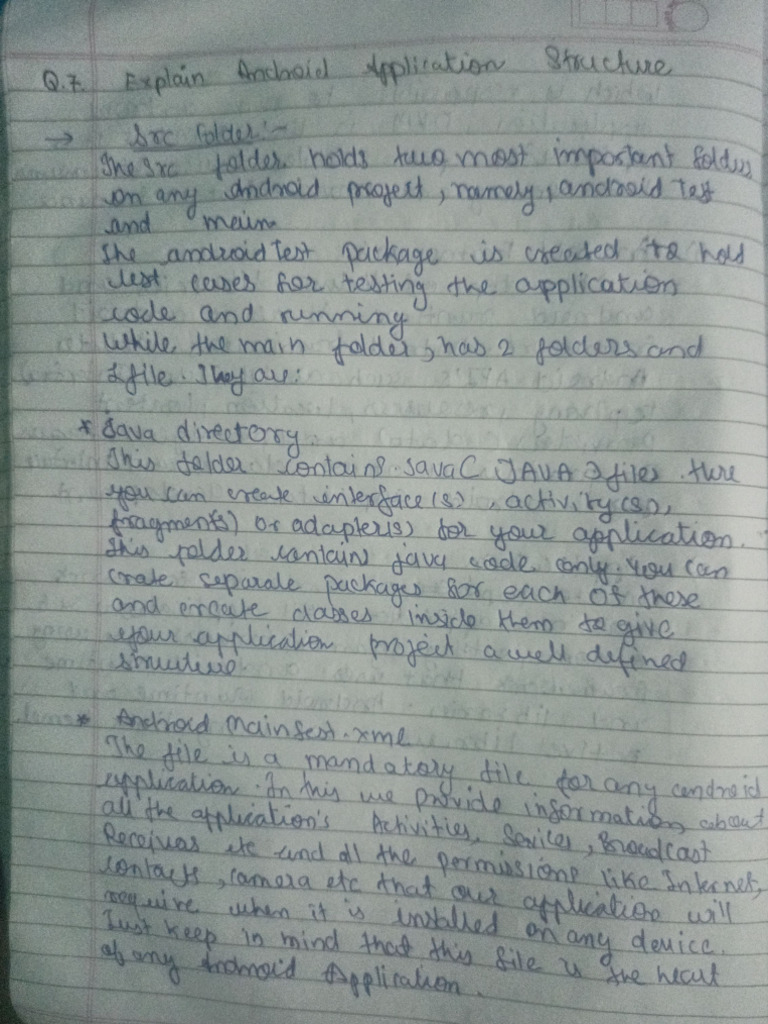 Q.7. Explain Android Application Structure
→ Src folder:-
The src folder holds two most important folders
on any android project, namely, android Test
and main
The android Test package is created to hold
test cases for testing the application
code and running
While the main folder, has 2 folders and
1 file. They are:
* Java directory
This folder contains Java C JAVA ) files. Here
you can create interface(s), activity(s),
fragment(s) or adapter(s) for your application.
This folder contains java code only. You can
crate separale packages for each of these
and create classes inside them to give
your application project a well defined
structure
* Android Mainfest.xml
The file is a mandatory file for any android
application. In this we provide information about
all the application's Activities, Sevices, Broadcast
Receivers etc and all the permissions like Internet,
contacts, camera etc that our application will
require when it is installed on any device.
Just keep in mind that this file is the heart
of any Android Application.